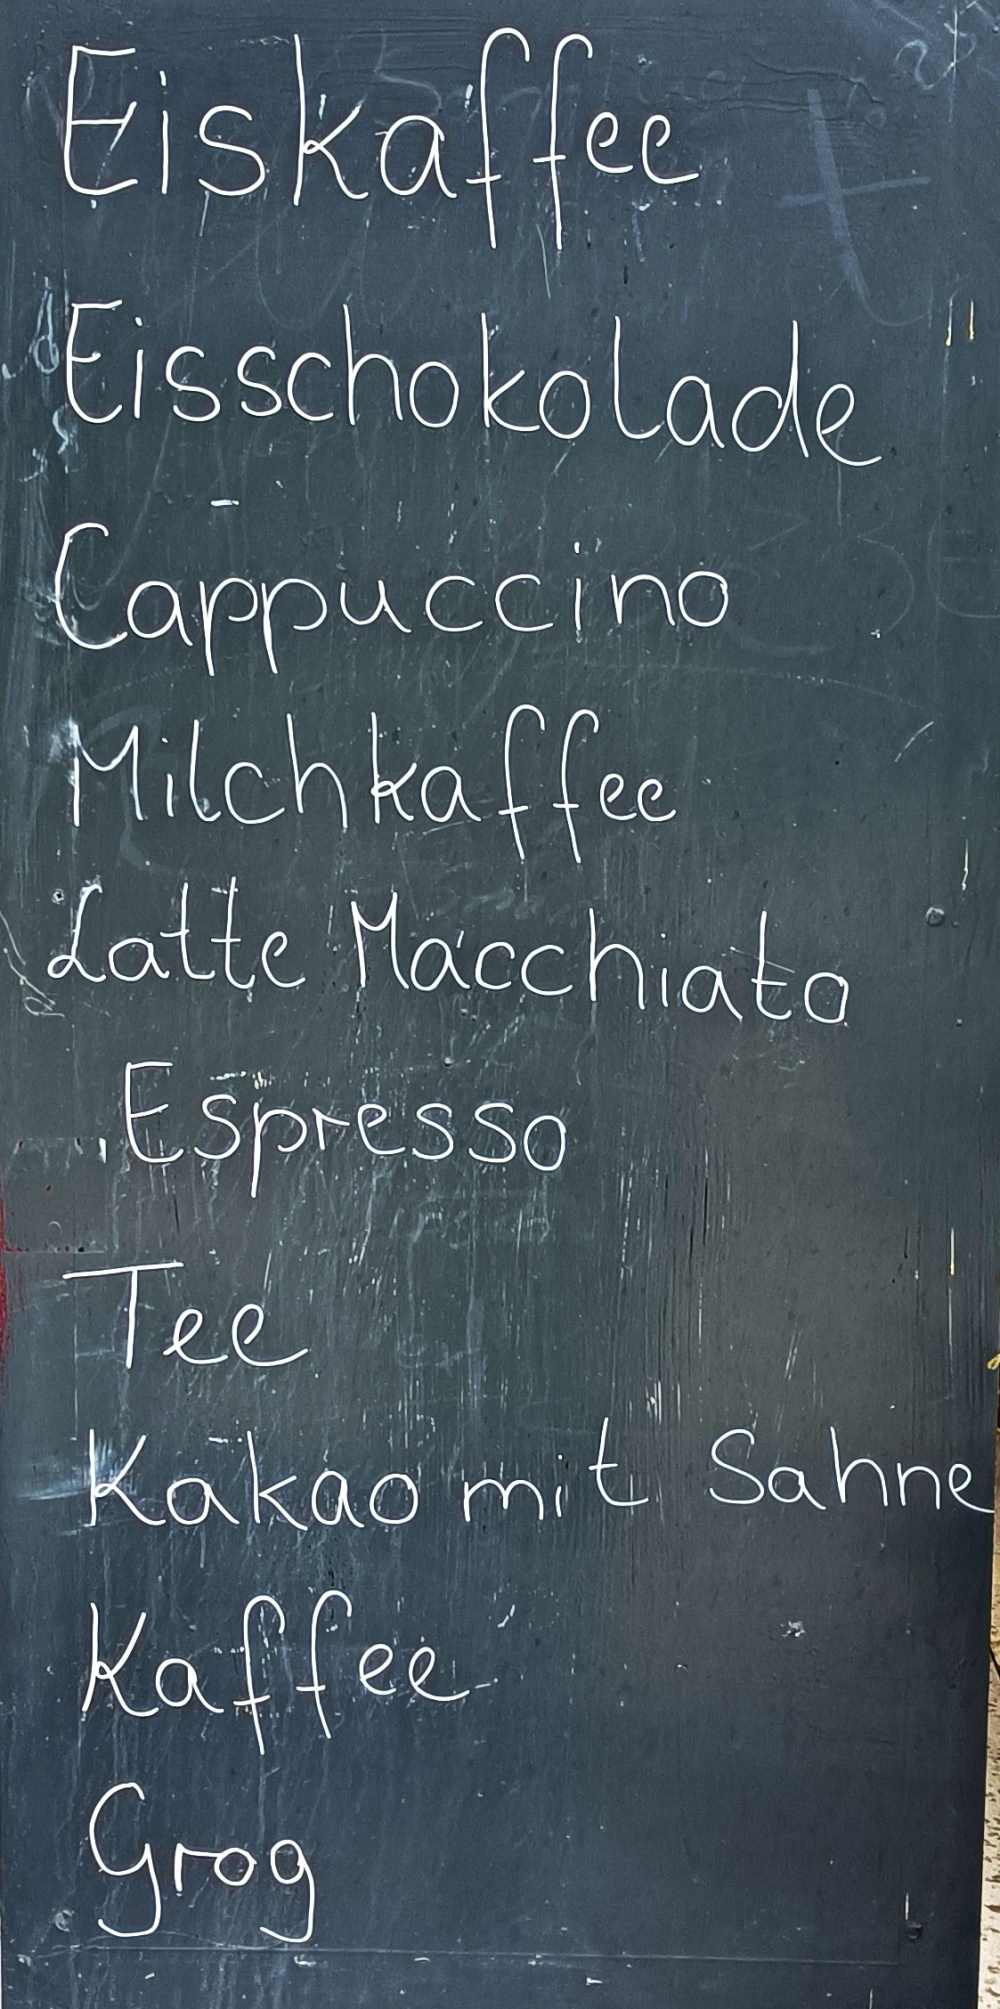 Eiskaffee
Eisschokolade
Cappuccino
Milchkaffee
Latte Macchiato
Espresso
Tee
Kakao mit Sahne
Kaffee
Grog